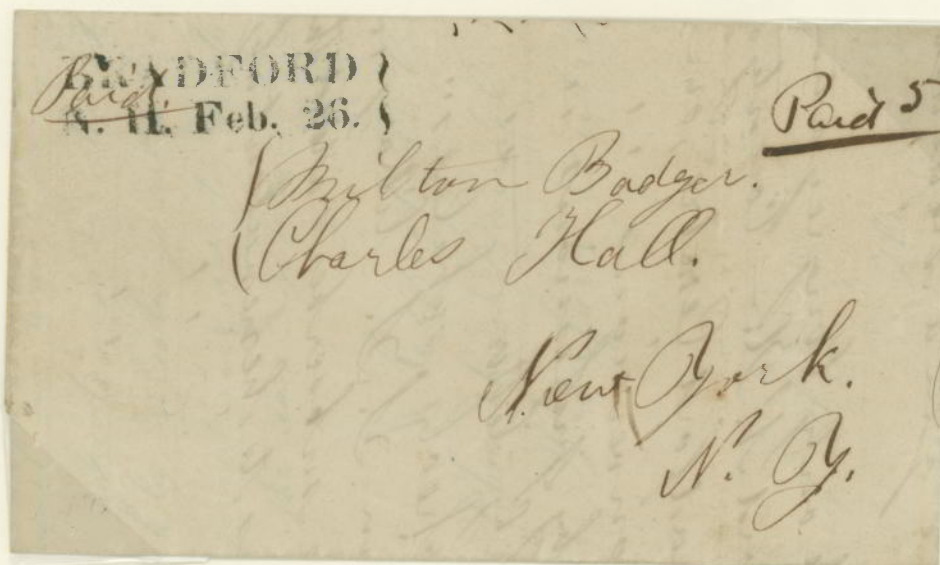 BRADFORD }
N. H. Feb. 26. }
Paid.
Paid 5
(Milton Badger.
(Charles Hall.
New York.
N. Y.